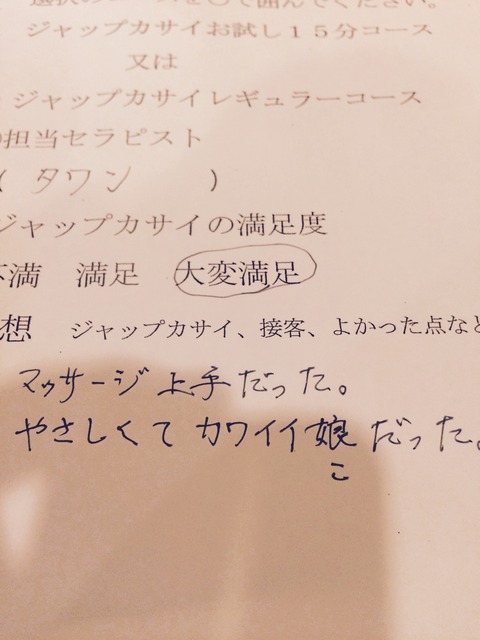 選択のコースを○で囲んでください。
ジャップカサイお試し１５分コース
又は
ジャップカサイレギュラーコース
担当セラピスト
( タワン )
ジャップカサイの満足度
不満 満足 大変満足
想 ジャップカサイ、接客、よかった点など
マッサージ上手だった。
やさしくてカワイイ娘だった。
こ